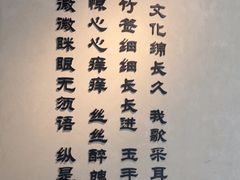 文化绵长久 我歌采耳
竹签细细长长进 玉手
惊心心痒痒 丝丝醉魄
微微眯眼无须语 纵是